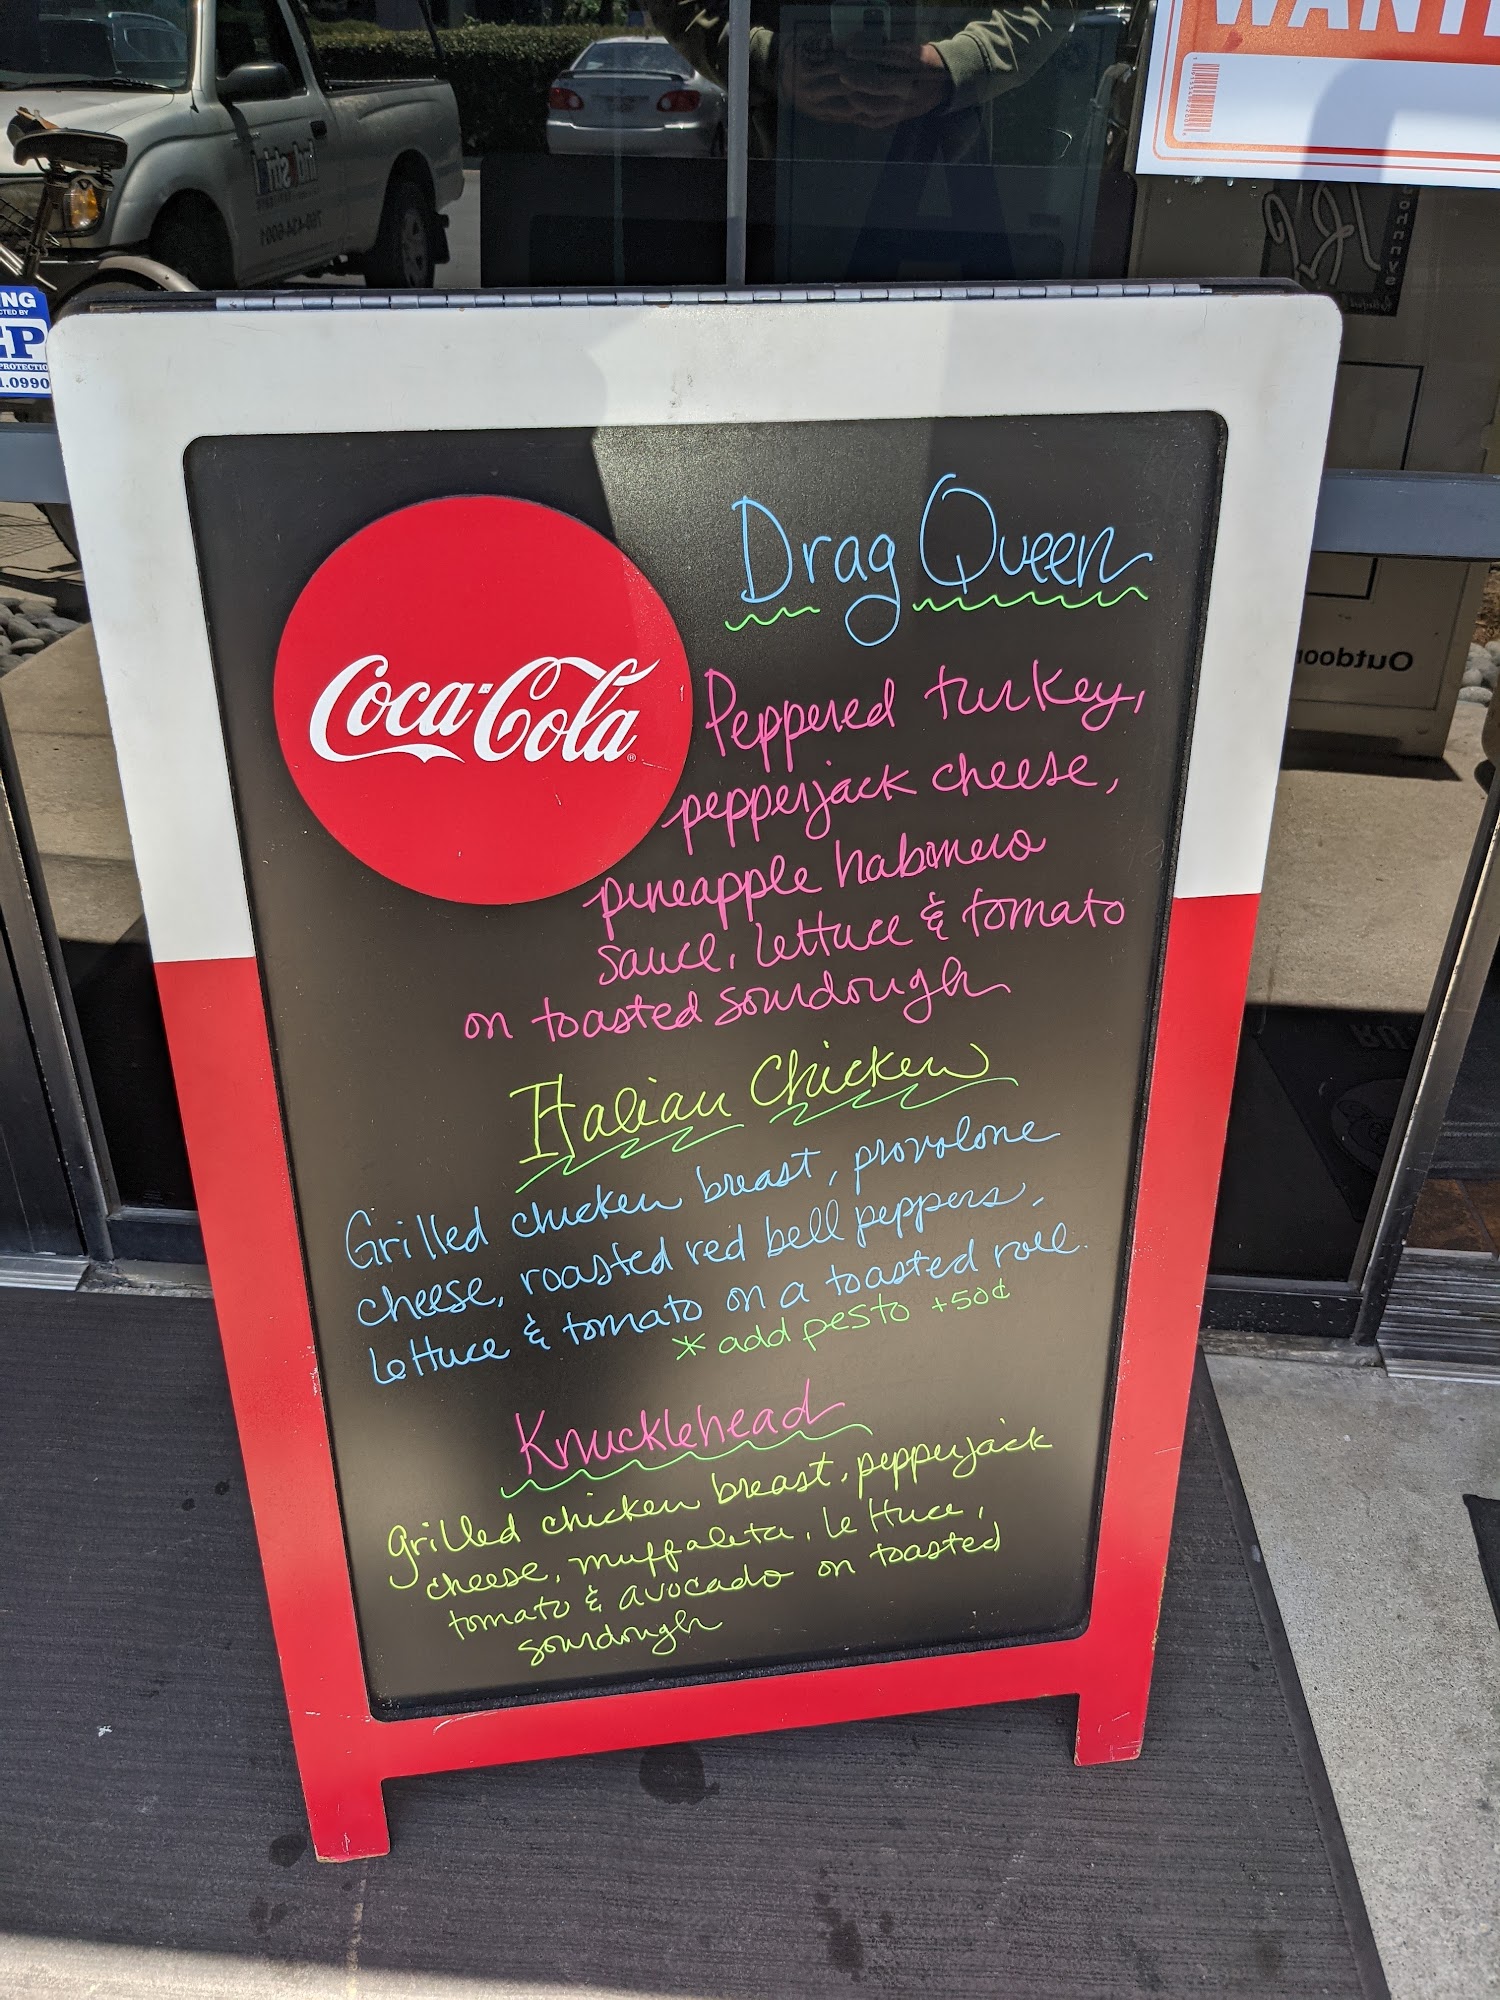 WANT
NG
CTED BY
PROTECTIO
1.0990
Outdoor
Coca-Cola
Drag Queen
Peppered turkey,
pepperjack cheese,
pineapple habanero
sauce, lettuce & tomato
on toasted sourdough
Italian Chicken
Grilled chicken breast, provolone
cheese, roasted red bell peppers,
lettuce & tomato on a toasted roll.
* add pesto +50¢
Knucklehead
Grilled chicken breast, pepperjack
cheese, muffaleta, lettuce,
tomato & avocado on toasted
sourdough